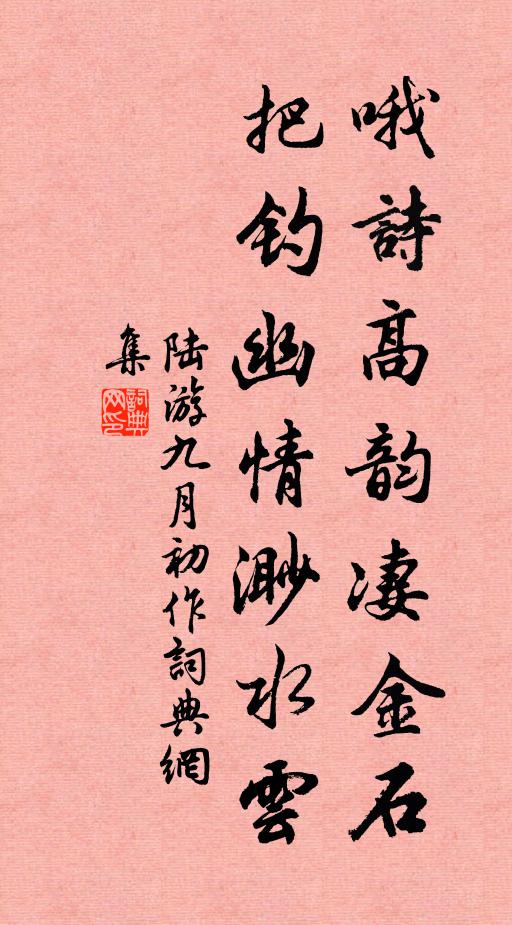 哦詩高韵凄金石
把钓幽情渺水雲
陆游九月初作詞典網
集
詞典
网印